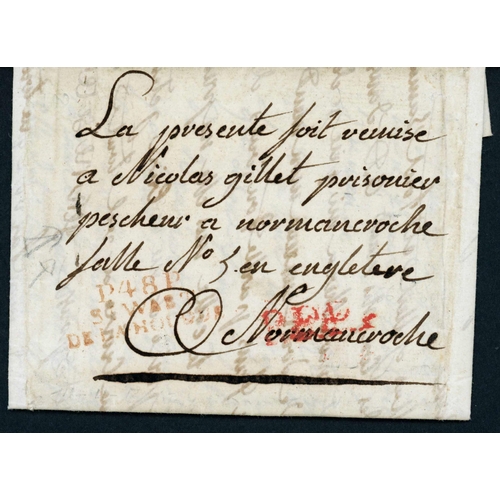 La presente soit remise
a Nicolas gillet prisonier
pescheur a normancroche
salle No 5 en engletere
P.48.P.
ST. WAST
DE LA HOUGUE
a Normancroche